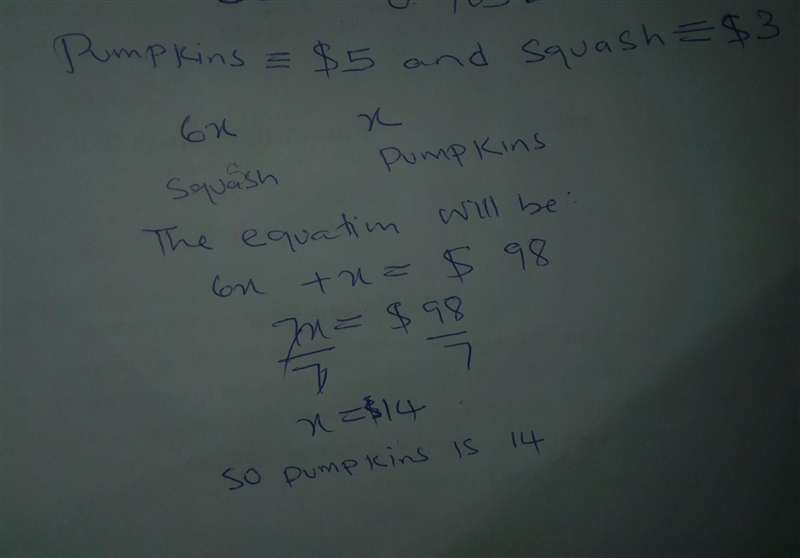 Pumpkins ≡ $5 and squash ≡ $3
6x x
squash pumpkins
The equatim will be:
6x + x = $ 98
7x/7 = $ 98/7
x = $14
so pumpkins is 14